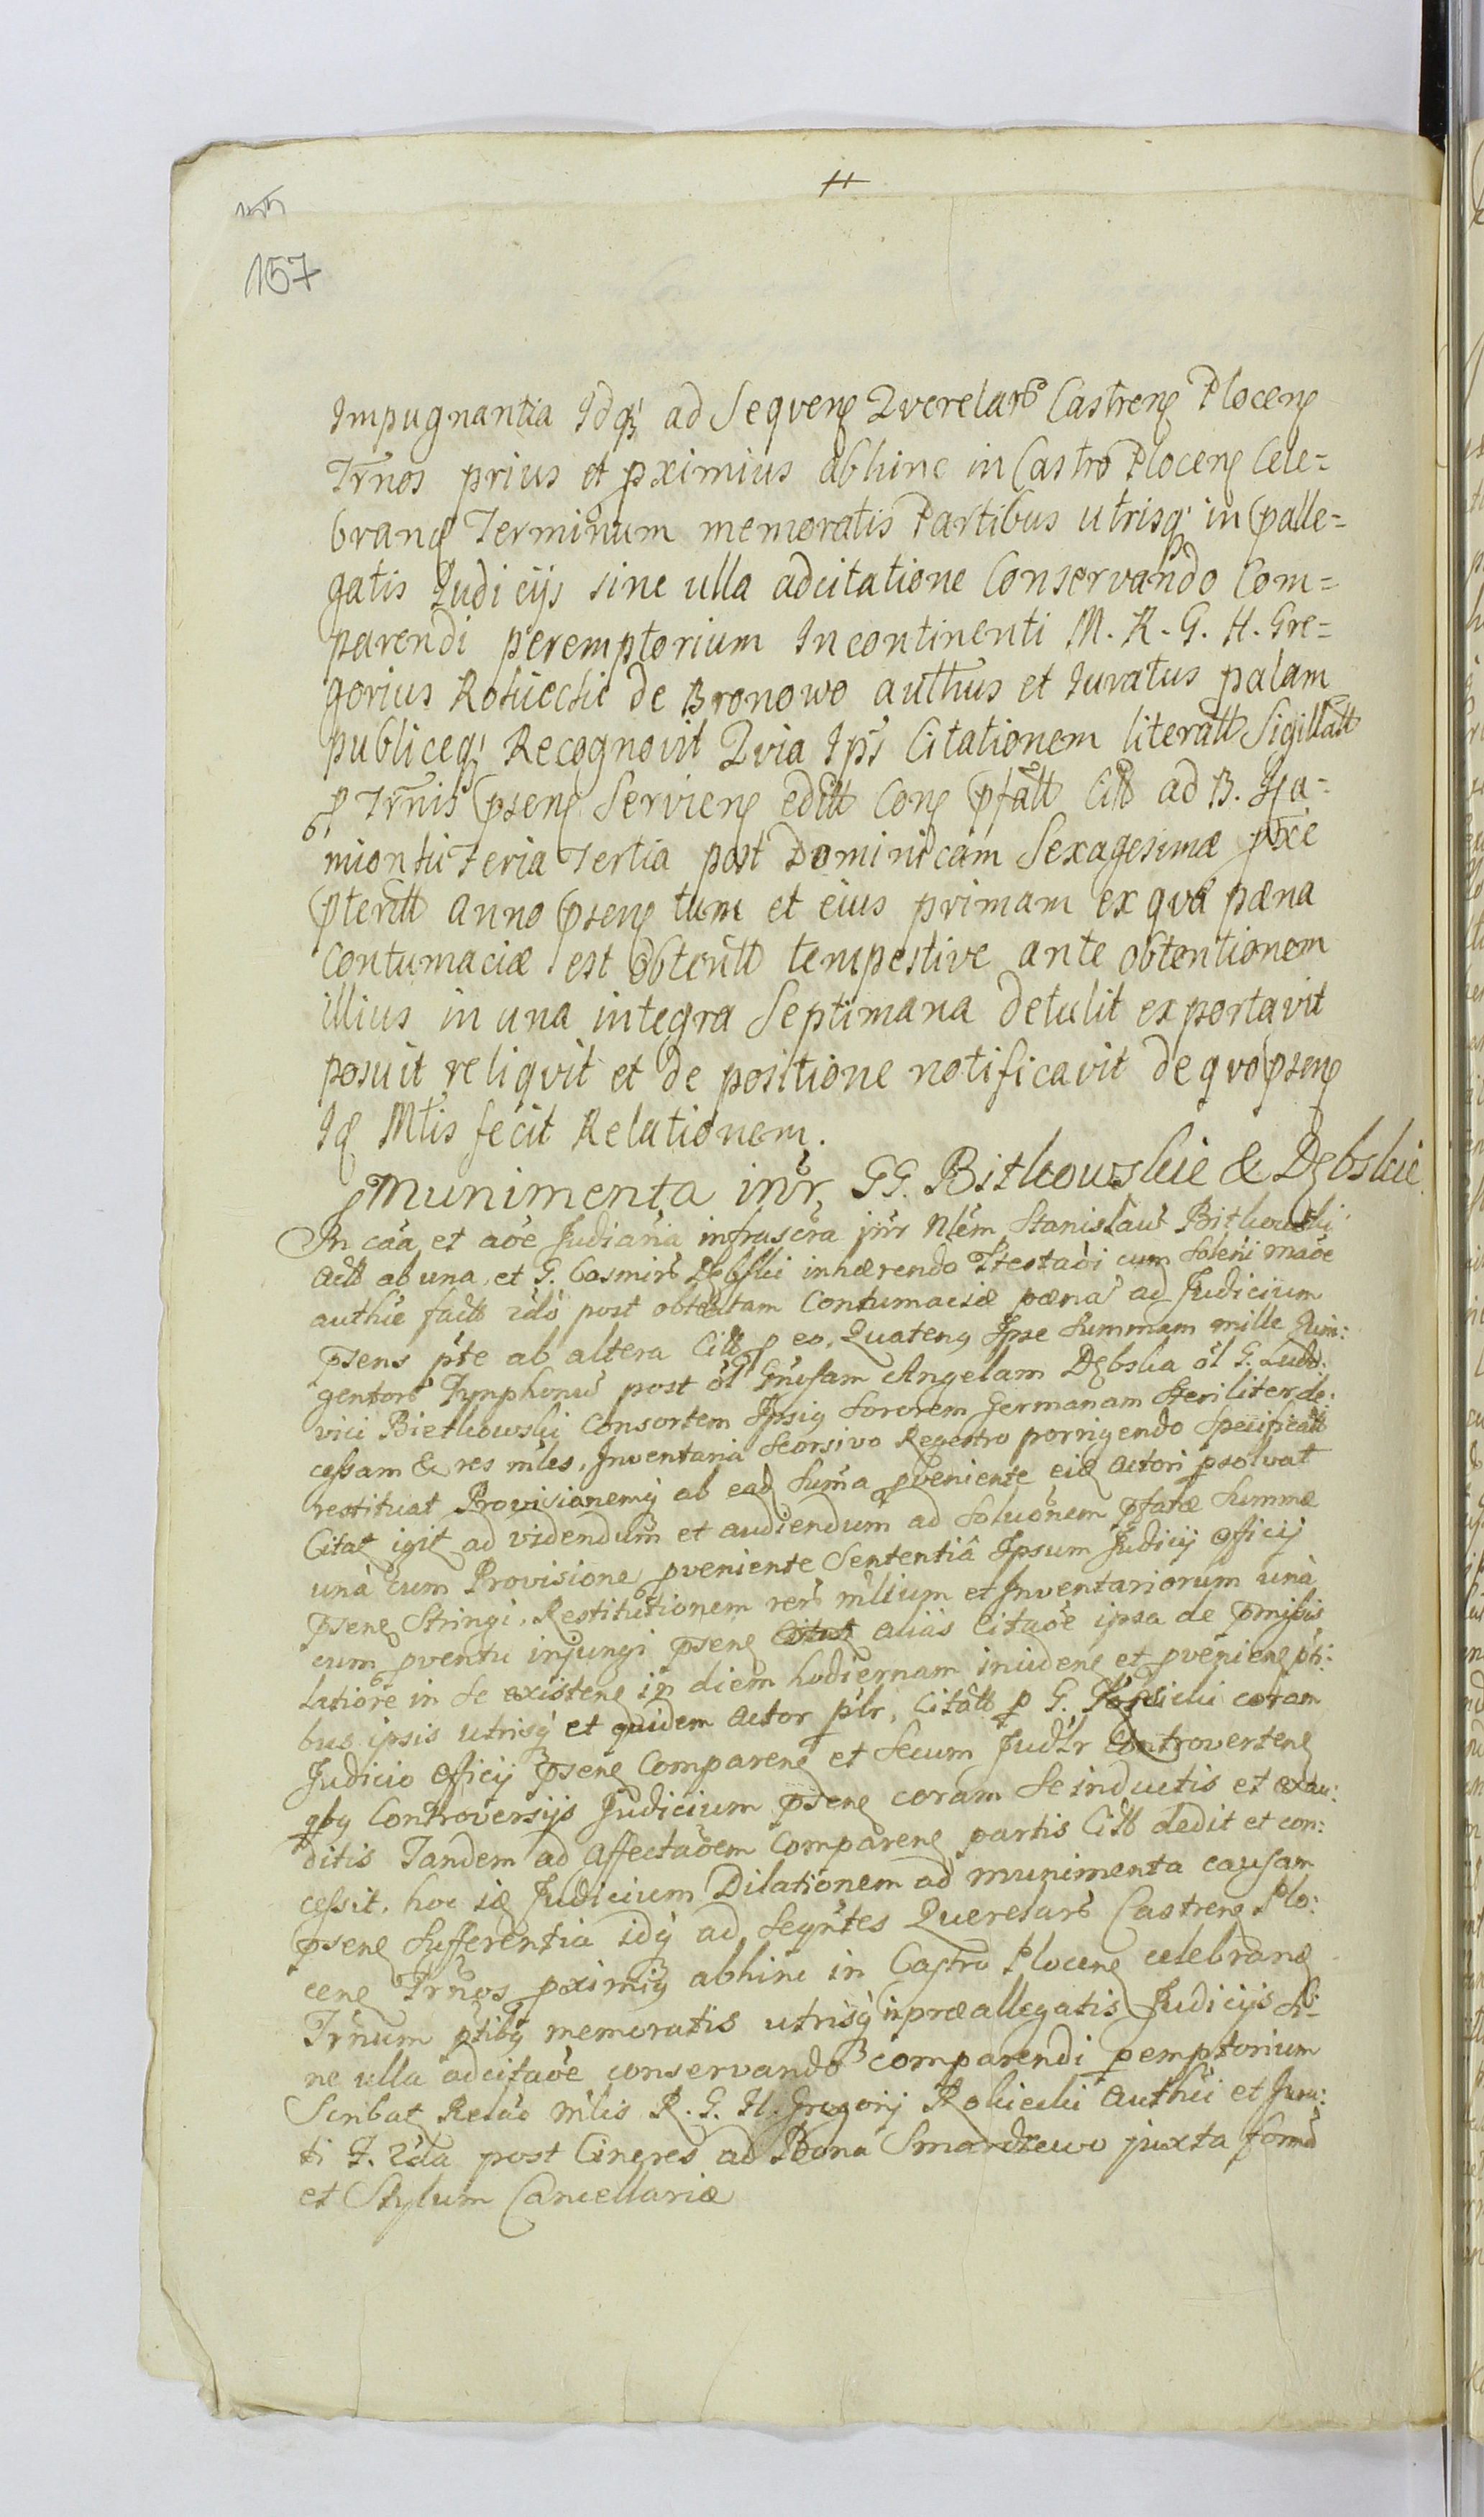 157
Impugnantia Idq; ad Sequen Querelarũ Castren Plocen
Trnos prius et pximius abhinc in Castro Plocen Cele=
bran Terminum memoratis Partibus utrisq; in palle=
gatis Iudicijs sine ulla adcitatione Conservando Com=
parendi peremptorium Incontinenti M. R. G. H. Gre=
gorius Rokiecki de Bronowo authus et Iuratus palam
publiceq; Recognovit Quia Ips Citationem literatt Sigillatt
p Trnis psen Servien editt Con pfatt Citt ad B. Ha=
mionki Feria Tertia post Dominicam Sexagesimæ pxe
pteritt anno psen tum et eius primam ex qva pæna
Contumaciæ est obtentt tempestive ante obtentionem
illius in una integra Septimana detulit exportavit
posuit reliqvit et de positione notificavit de qvo psen
Id Mtis fecit Relationem.
Munimenta intr GG. Bitkowskie & Dębskie
In caa et aoe Judiaria infrascra intr Nlem Stanislaum Bitkowski
Actt ab una, et G. Casmirũ Dębski inhærendo Ttestaoi cum Soleni maoe
authie factt 2do post obtentam Contumaciæ pæna ad Judicium
psens pte ab altera Citt p eo, Quateng Ipse Summam mille Quin:
gentorũ Tymphonũ post ol Gnusam Angelam Dębska ol G. Ludo:
vici Bietkowski Consortem Ipsig Sororem Germanam Steriliter de:
cessam & res mles, Inventaria Seorsivo Regestro porrigendo Specificatt
restituat Provisionemq ab ead Suma pveniente eid actori psolvat
Citat igit ad videndum et audiendum ad Soluonem pfatæ Summæ
unà cum Provisione pveniente Sententiâ Ipsum Judicij Officij
psen Stringi, Restitutionem rerũ mlium et Inventariorum unà
cum pventu injungi psen aliàs Citaoe ipsa de pmissis
Latiore in Se existen in diem hodiernam iniciden et pvenien pti:
bus ipsis utrisq et quidem Actor plr, Citatt p G. coram
Judicio Officij psen Comparen et Secum Judlr Controverten
qbg Controversijs Judicium psen coram Se inductis et exau:
ditis Tandem ad Affectaoem Comparen partis Citt dedit et con:
cessit, hoc id Judicium Dilationem ad munimenta causam
psen Sufferentia idq ad Seqntes Querelarũ Castren Plo:
cen Trnos pximig abhinc in Castro Plocen celebran
Trnum ptibg memoratis utrisq in præallegatis Judicijs Si=
ne ulla adcitaoe conservando comparendi pemptorium
Scribat Relao mlis R. G. H. Gregorij Rokiecki Authci et Jura:
ti F. 2da post Cineres ad Bona Smardzewo juxta formã
et Stylum Cancellariæ